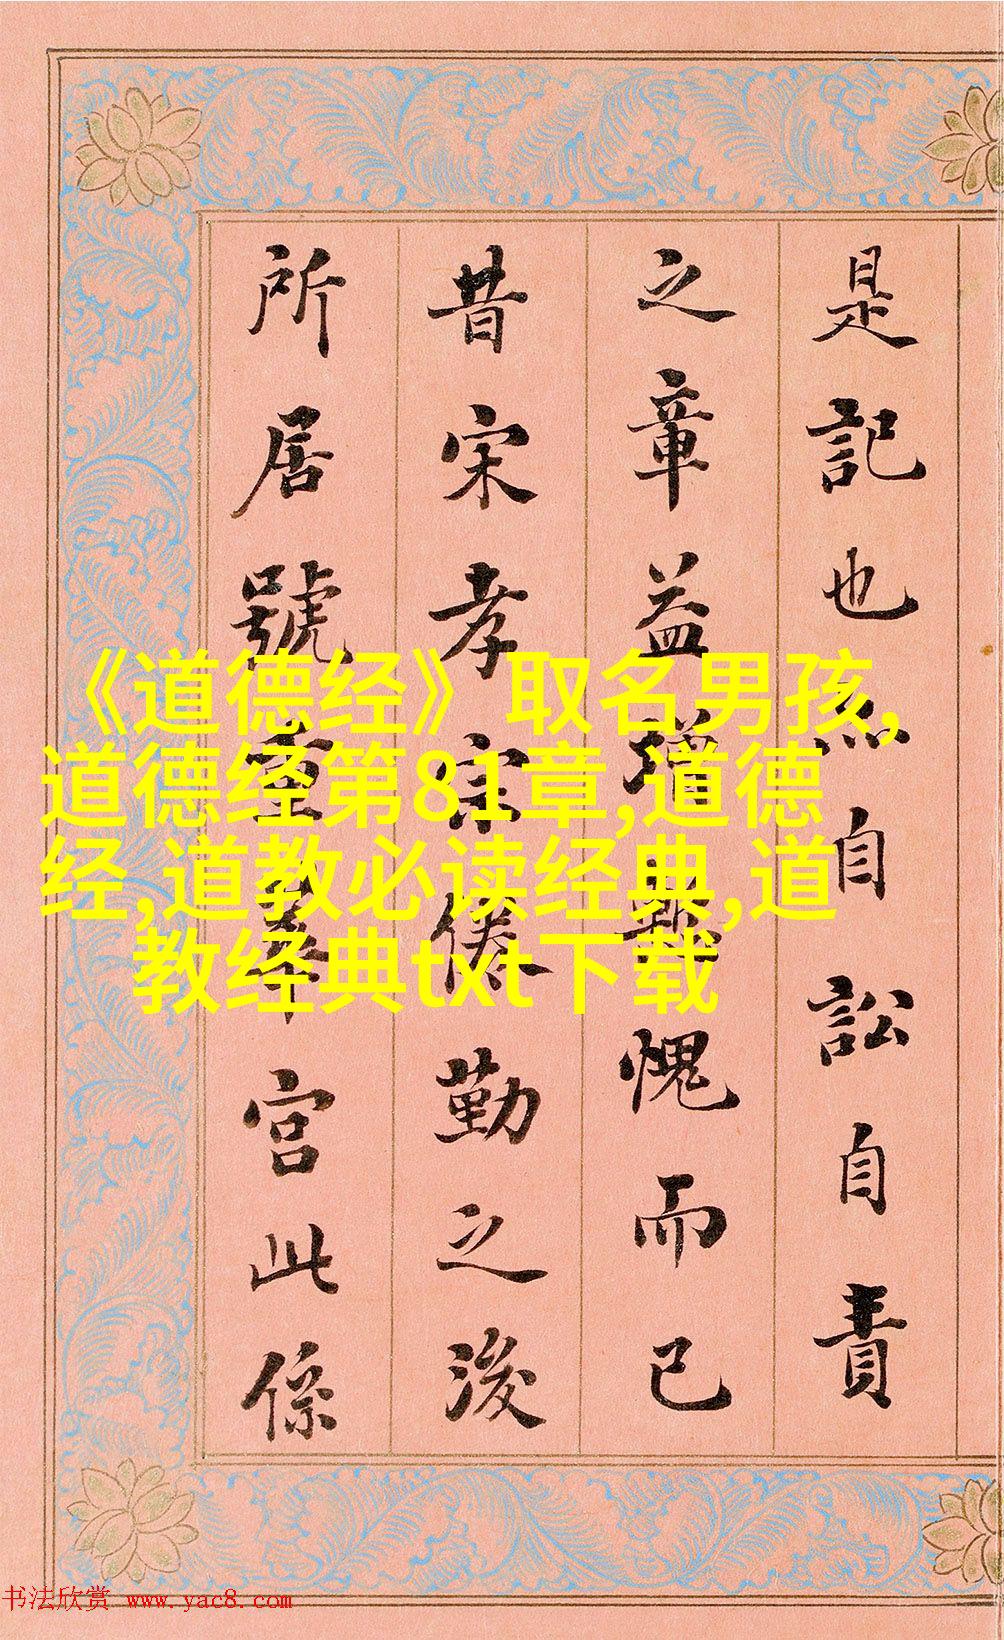 是記也自訟自責
之章益增愧而已
昔宋孝宗倦勤之後
所居號重華宮此係
《道德经》取名男孩,
道德经第81章,道德
经,道教必读经典,道
教经典txt下载
书法欣赏 www.yac8.com